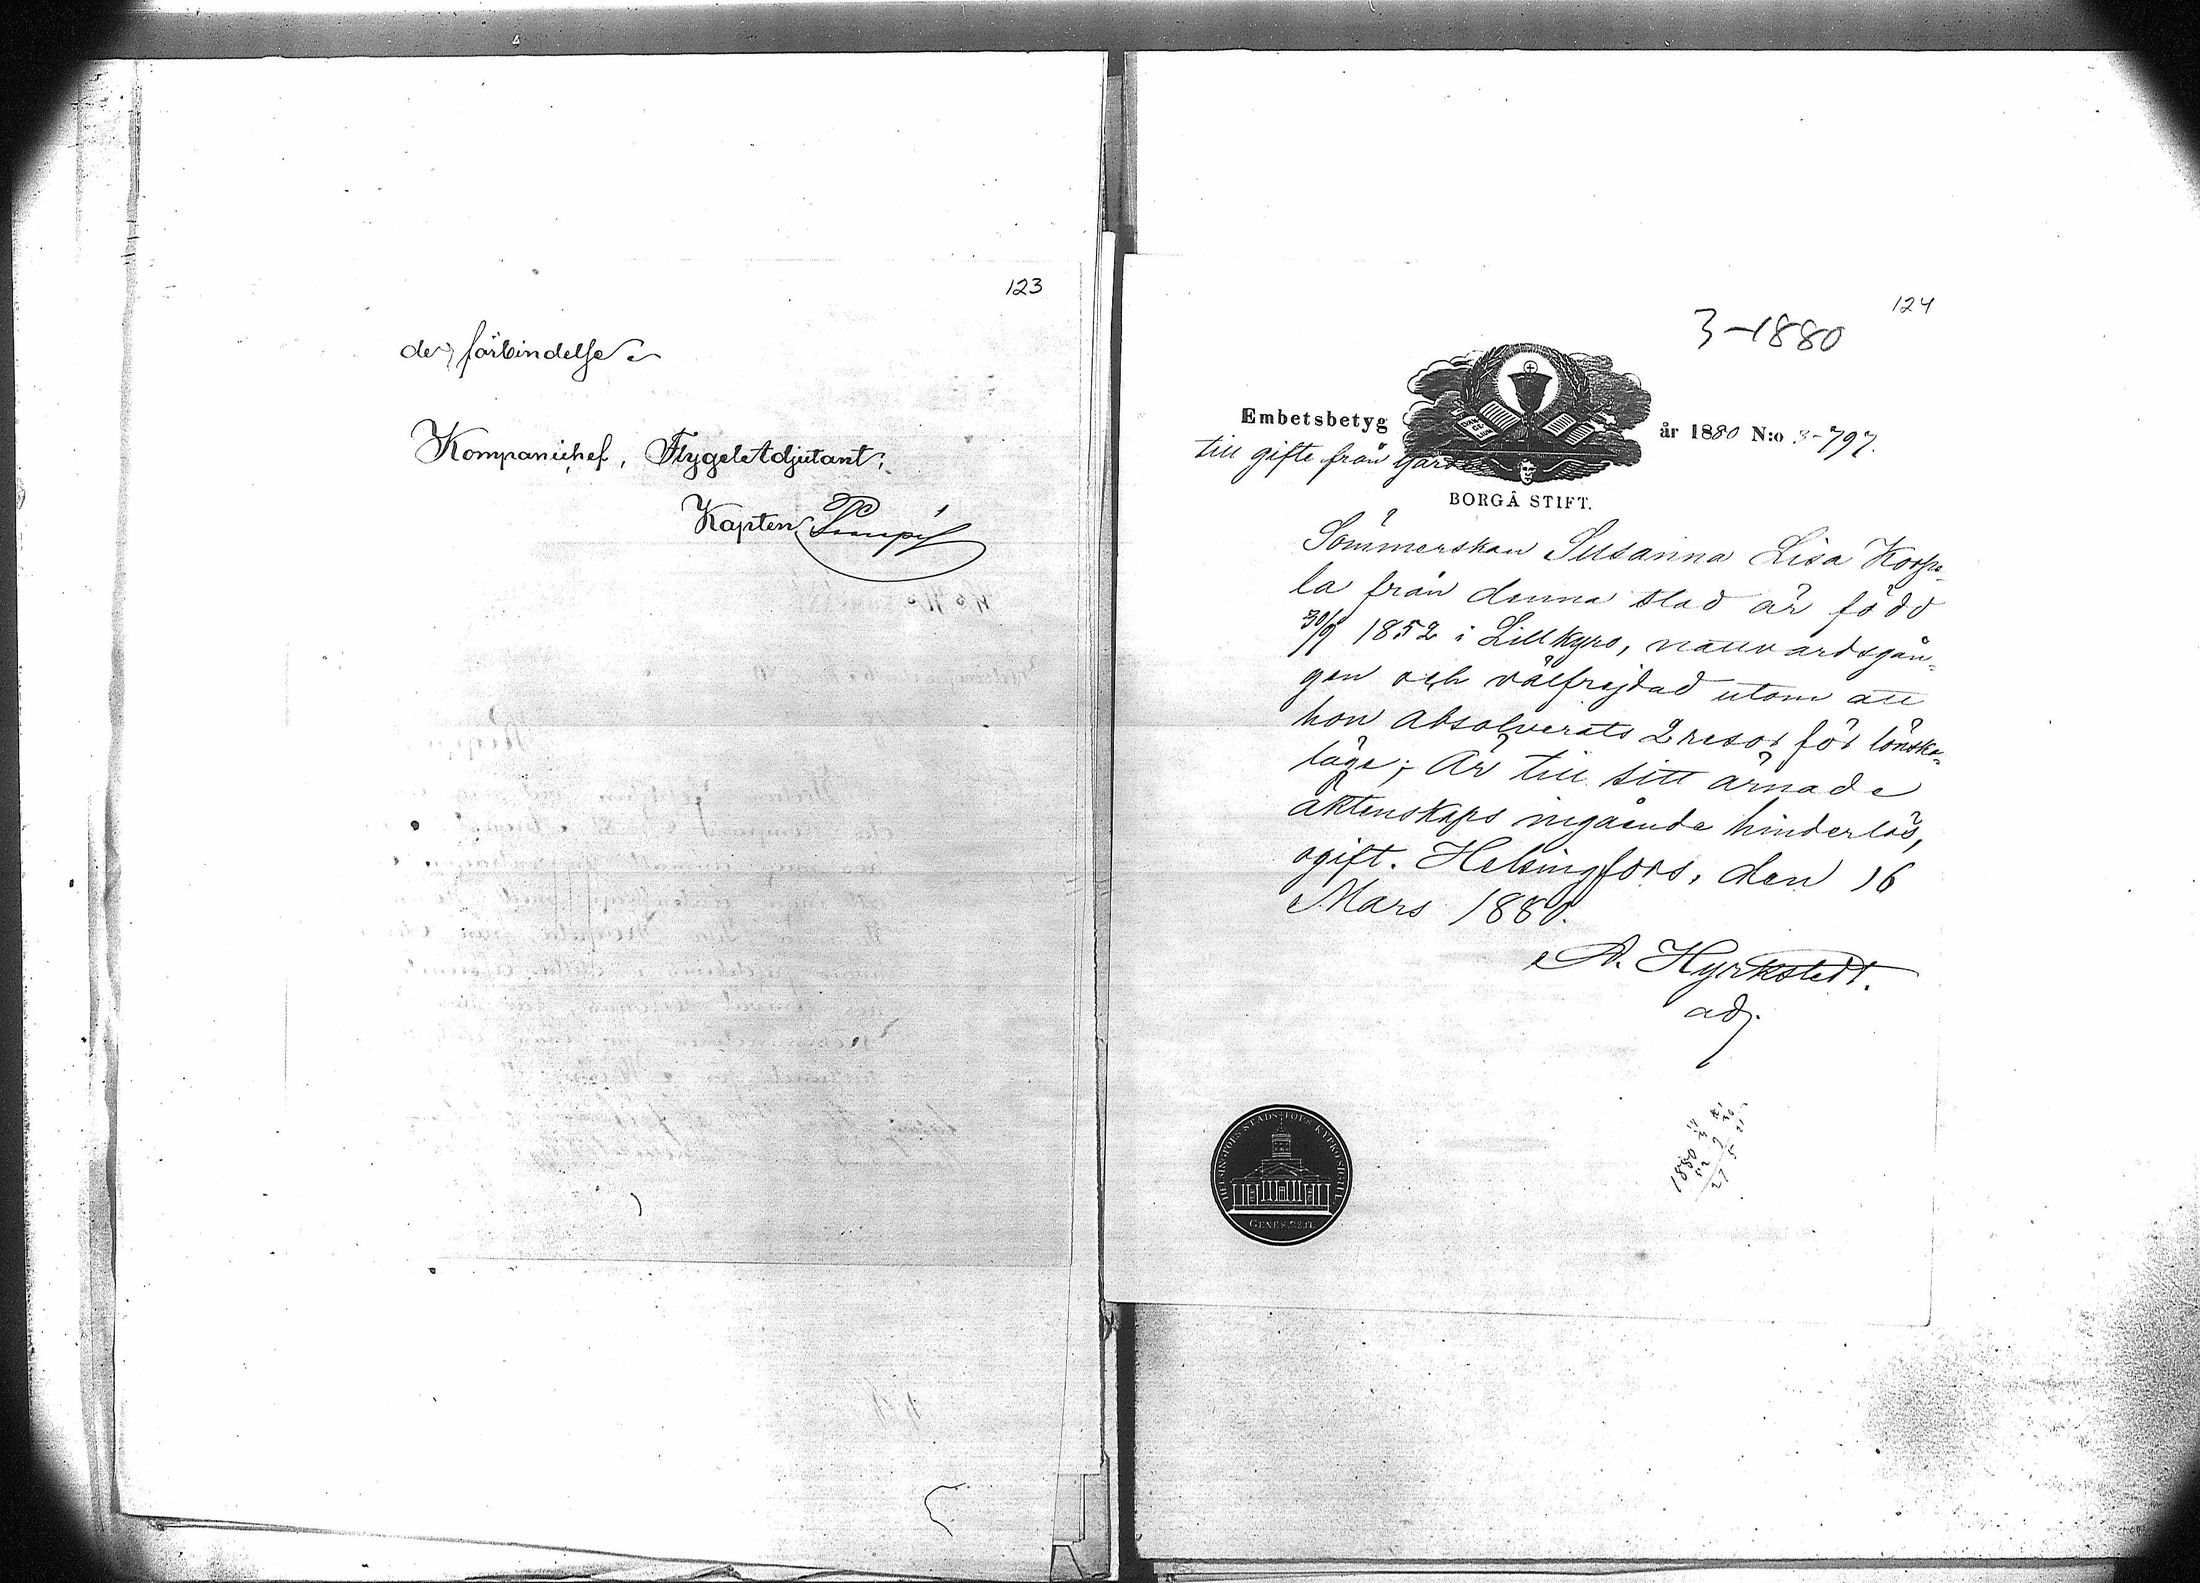 123
de förbindelse
Kompanichef, FlygelAdjutant,
Kapten
124
3-1880
Embetsbetyg
år 1880 N:o 3-797.
till gifte från Garde
BORGÅ STIFT.
Sömmerskan Susanna Lisa Korpe-
la från denna stad är född
30/9 1852 i Lillkyro, nattvardsgån-
gen och välfrejdad utom att
hon absolverats 2 resor för lönska-
läge; Är till sitt ärnade
äktenskaps ingående hinderlös,
ogift. Helsingfors, den 16
Mars 1880.
A. Hyrkstedt.
adj.
HELSINGFORS STADS KYRKOSIGILL
GENES. 28.17.
1880
52
27